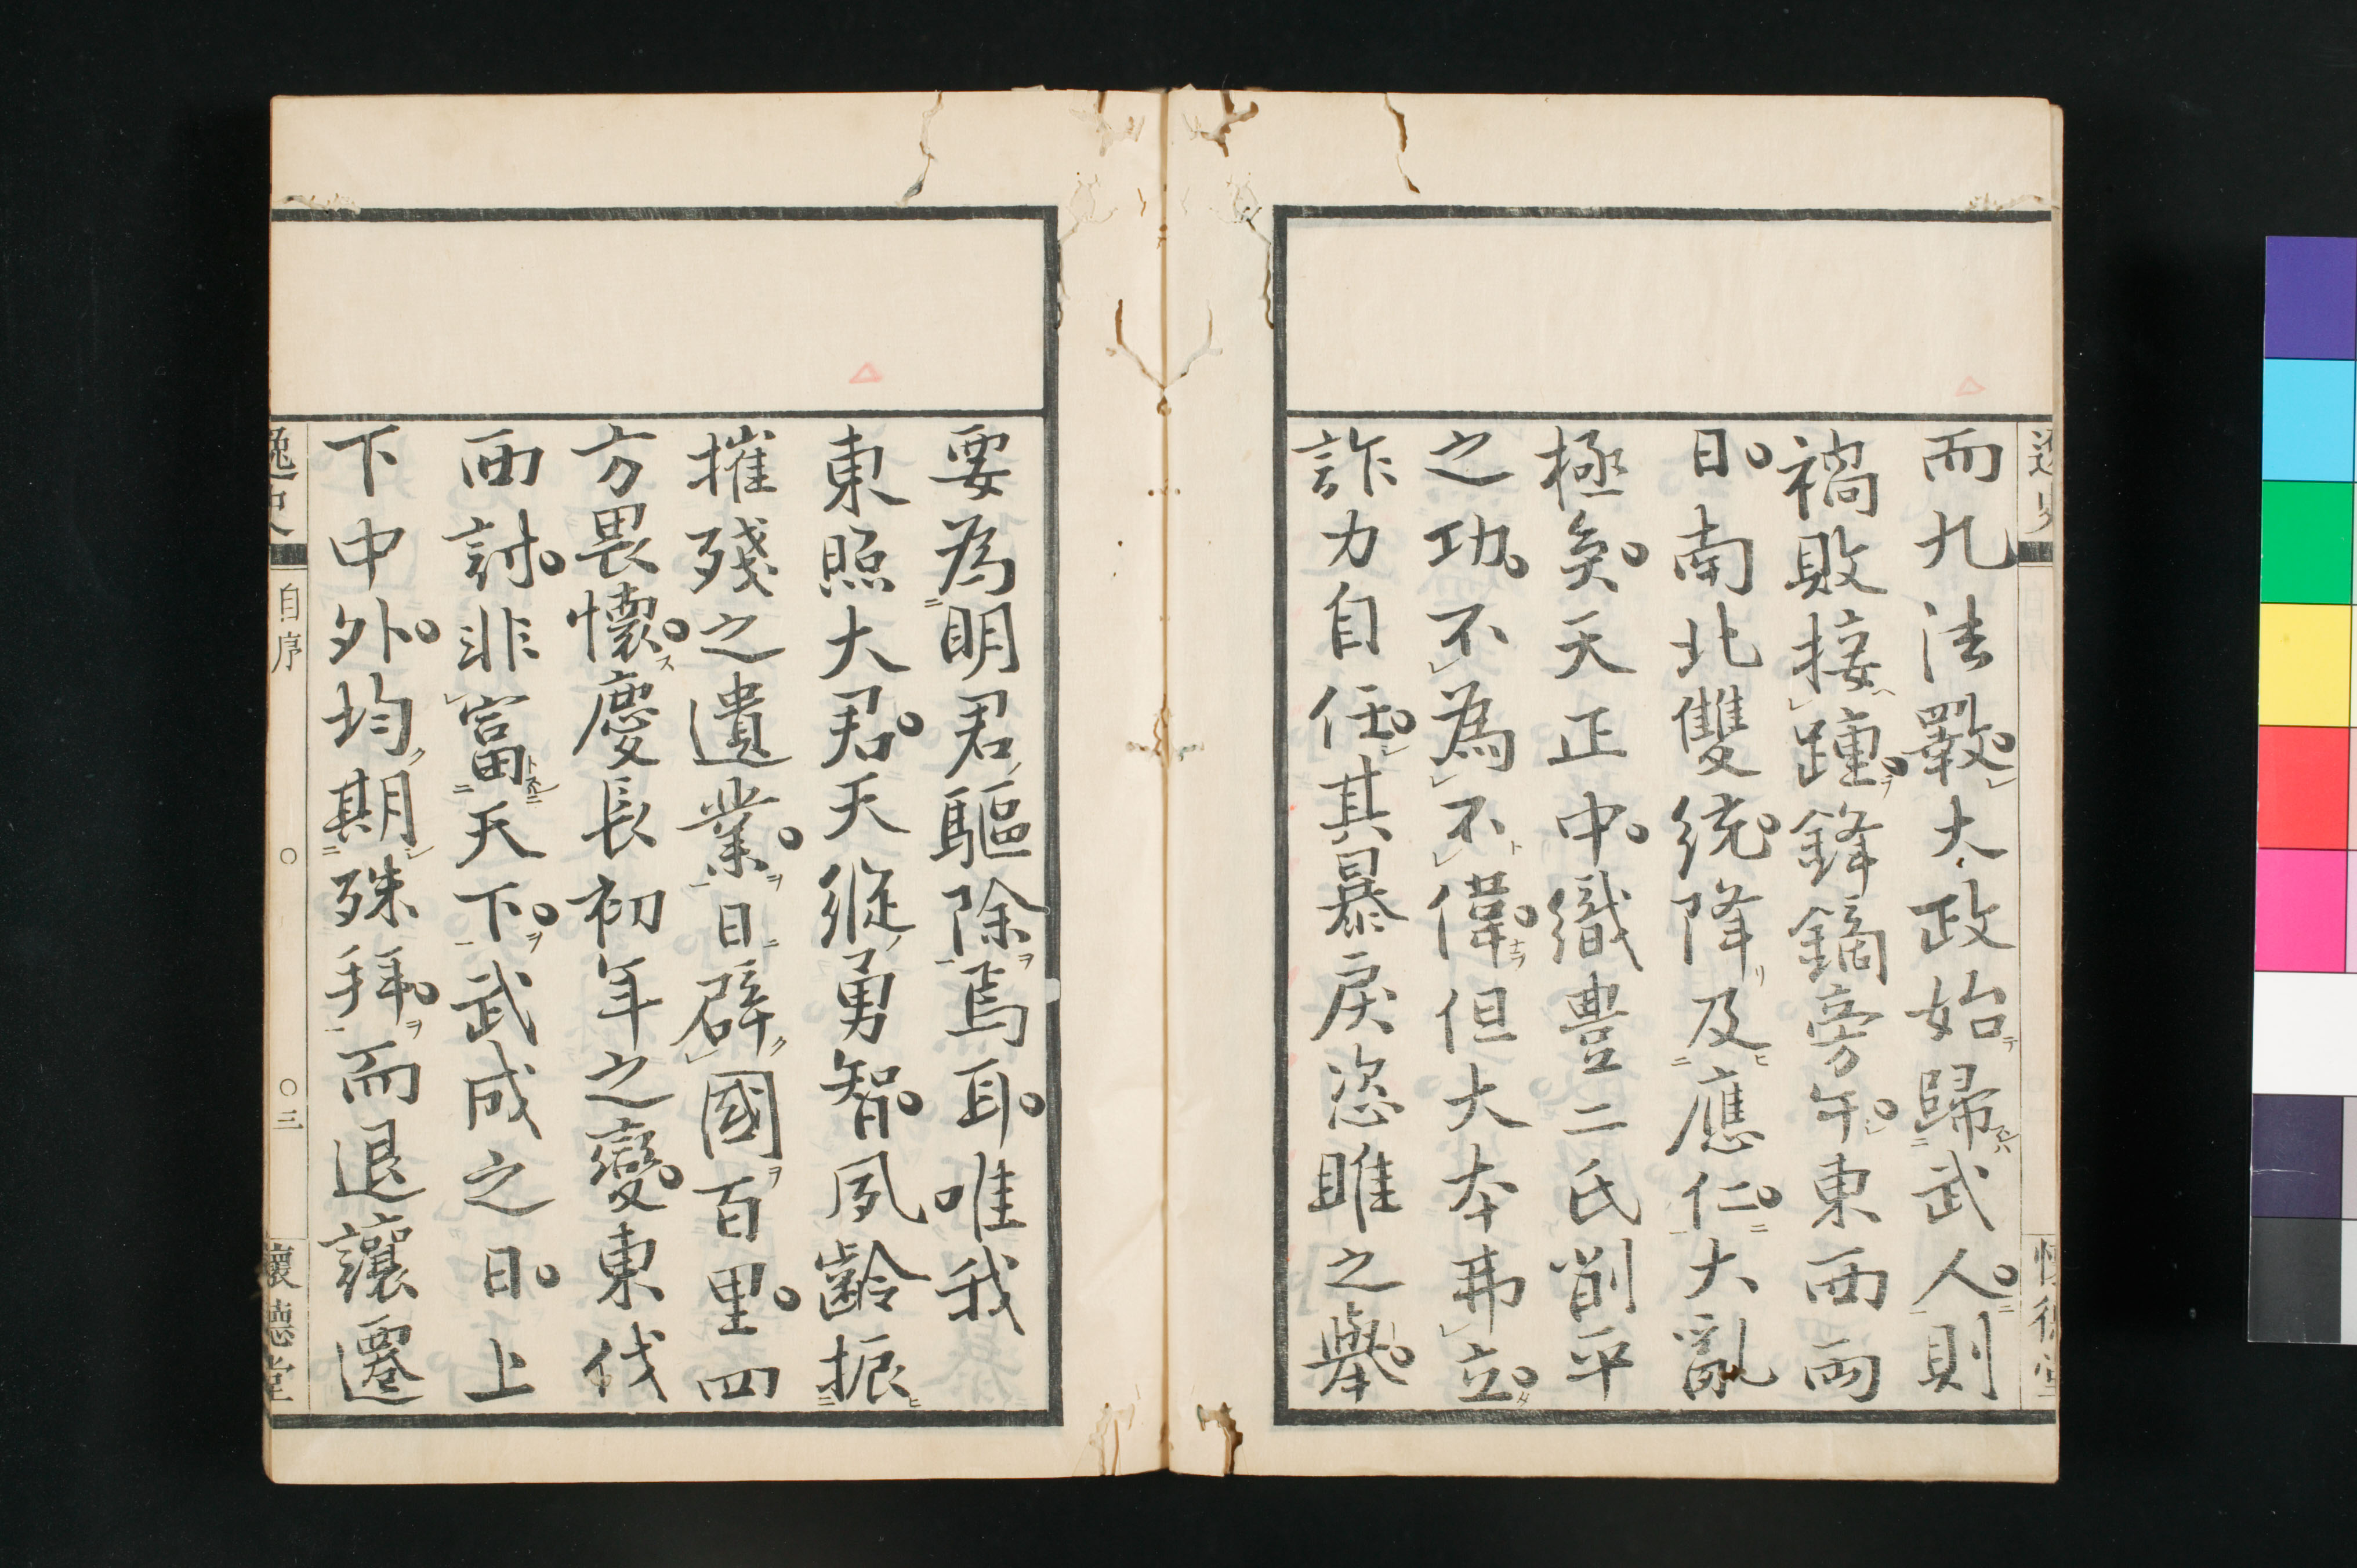 而九法斁大政始歸武人則
禍敗接踵鋒鏑旁午東西兩
日南北雙統降及應仁大亂
極矣天正中織豊二氏削平
之功不為不偉但大本弗立
詐力自任其暴戾恣睢之舉
要為明君驅除焉耳唯我
東照大君天縱勇智夙齡振
摧殘之遺業日辟國百里四
方畏懷慶長初年之變東伐
西討非富天下武成之日上
下中外均期殊拜而退讓遷
逸史
自序
〇
〇三
懷德堂